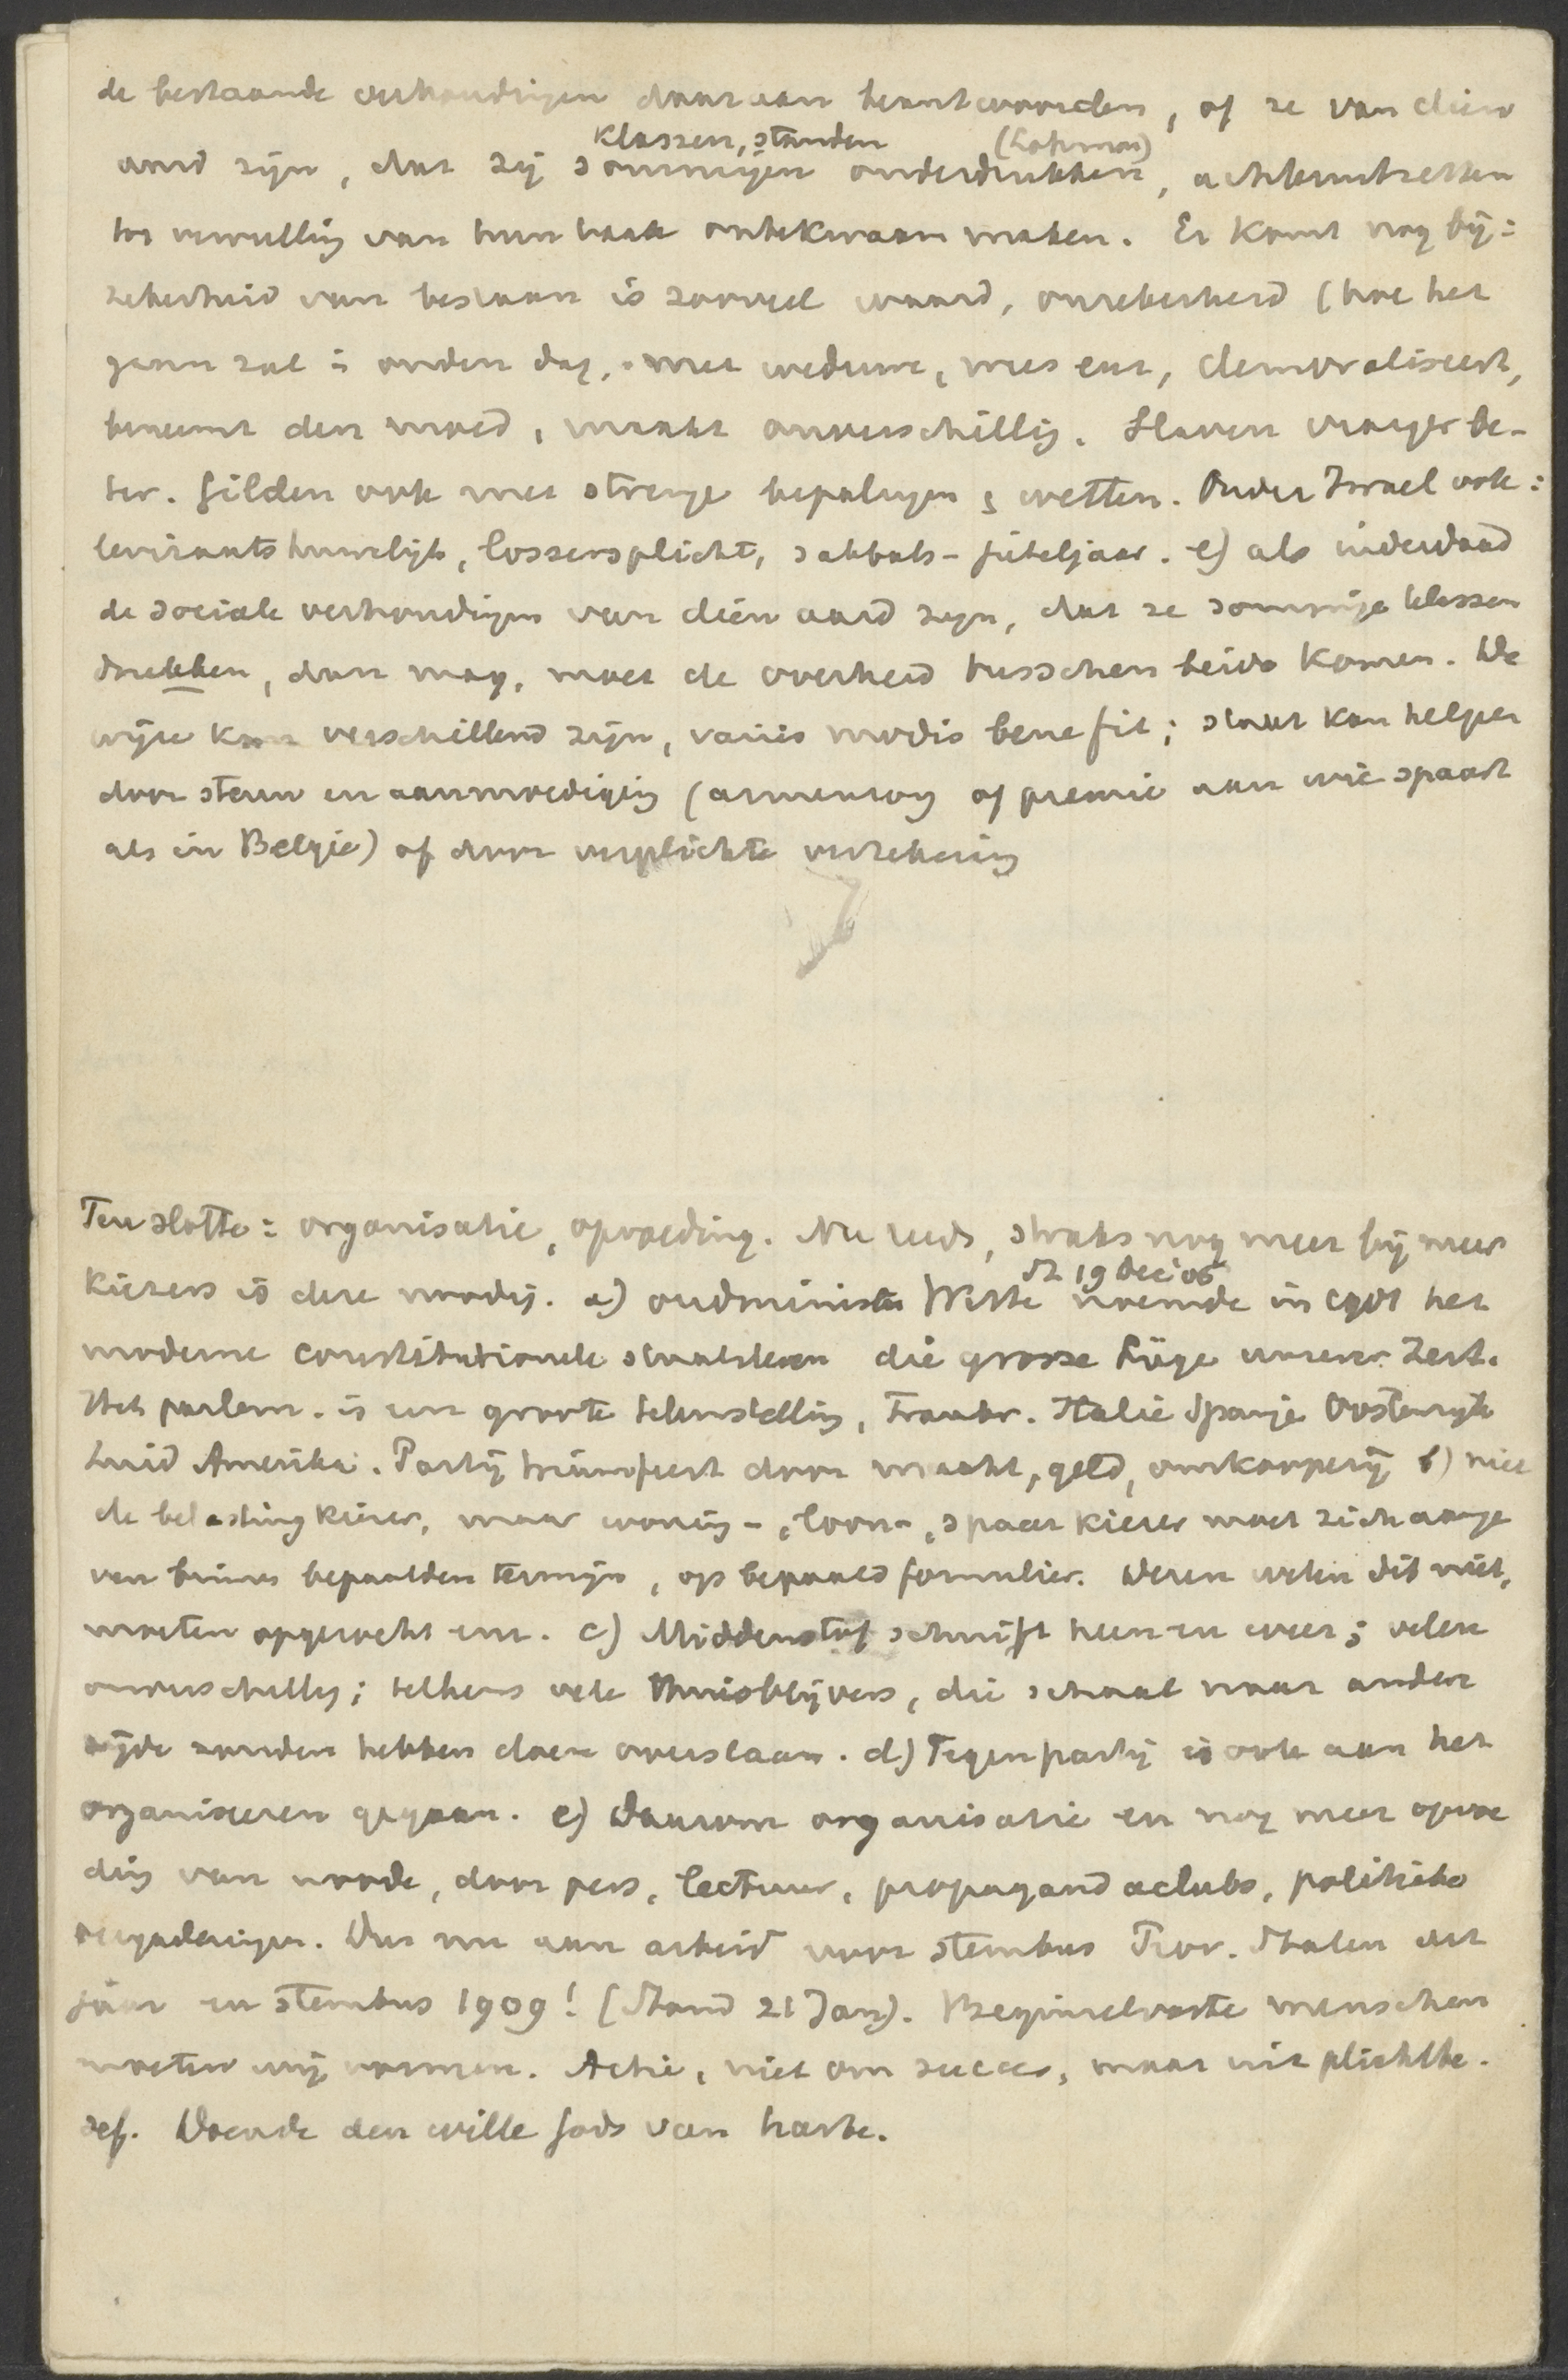 de bestaande verhoudingen daaraan beantwoorden, of ze van dien
klassen, standen (Lohman)
aard zijn, dat zij sommigen onderdrukken, achteruitzetten
tot vervulling van hun taak onbekwaam maken. Er komt nog bij:
zekerheid van bestaan is zooveel waard, onzekerheid (hoe het
gaan zal in ouden dag, met weduwe, wees enz, demoraliseert,
beneemt den moed, maakt onverschillig. Slaven vroeger be-
ter. Gilden ook met strenge bepalingen & wetten. Onder Israel ook:
leviraatshuwelijk, lossersplicht, sabbats- jubeljaar. e) als inderdaad
de sociale verhoudingen van dien aard zijn, dat ze sommige klassen
drukken, dan mag, moet de overheid tusschen beide komen. De
wijze kan verschillend zijn, variis modis bene fit; staat kan helpen
door steun en aanmoediging (armenzorg of premie aan wie spaart
als in Belgie) of door verplichte verzekering
Ten slotte: organisatie, opvoeding. Nu reeds, straks nog meer bij meer
St 19 Dec '06
kiezers is deze noodig. a) oudminister Witte noemde in het
moderne constitutioneele staatsleven die grosse Lüge unserer Zeit.
Het parlem. is een groote teleurstelling, Frankr. Italie Spanje Oostenrijk
Zuid Amerika. Partij triumfeert door macht, geld, omkooperij b) niet
de belastingkiezer, maar woning-, loon-, spaar kiezer moet zich aange
ven binnen bepaalden termijn, op bepaald formulier. Dezen weten dit niet,
moeten opgezocht enz. c) Middenstof schuift heen en weer; velen
onverschillig; telkens vele thuisblijvers, die schaal naar andere
zijde zouden hebben doen overslaan. d) Tegenpartij is ook aan het
organiseeren gegaan. e) Daarom organisatie en nog meer opvoe
ding van noode, door pers, lectuur, propagandaclubs, politieke
vergaderingen. Dus nu aan arbeid voor stembus Prov. Staten dit
jaar en stembus 1909! (Stand 21 Jan). Beginselvaste menschen
moeten wij vormen. Actie, niet om succes, maar uit plichtbe.
sef. Doende den wille Gods van harte.